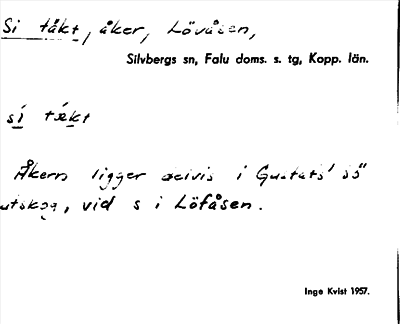 Si täkt, åker, Lövåsen,
Silvbergs sn, Falu doms. s. tg, Kopp. län.
sí tækt
Åkern ligger delvis i Gustafs' so
utskog, vid s i Löfåsen.
Inge Kvist 1957.